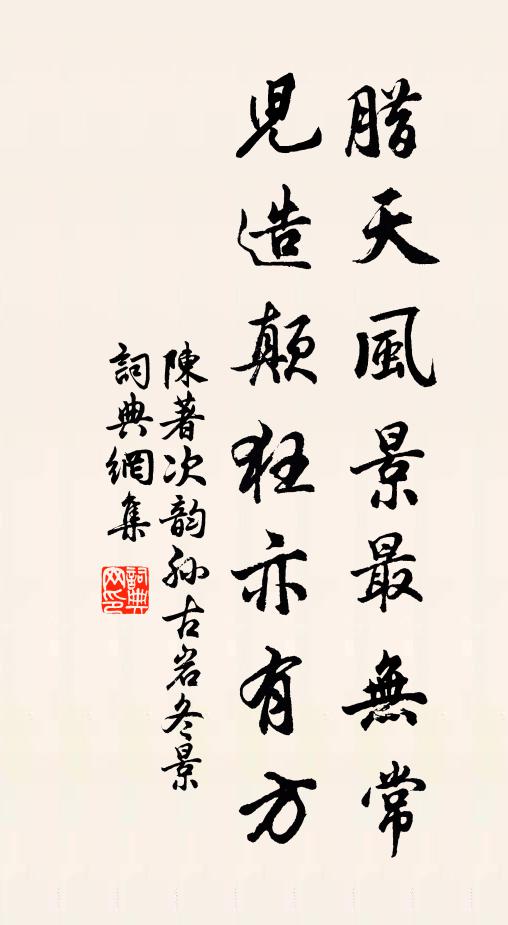 腊天風景最無常
児造顛狂亦有方
陳著次韵孫古岩冬景
詞典網集
詞典网印